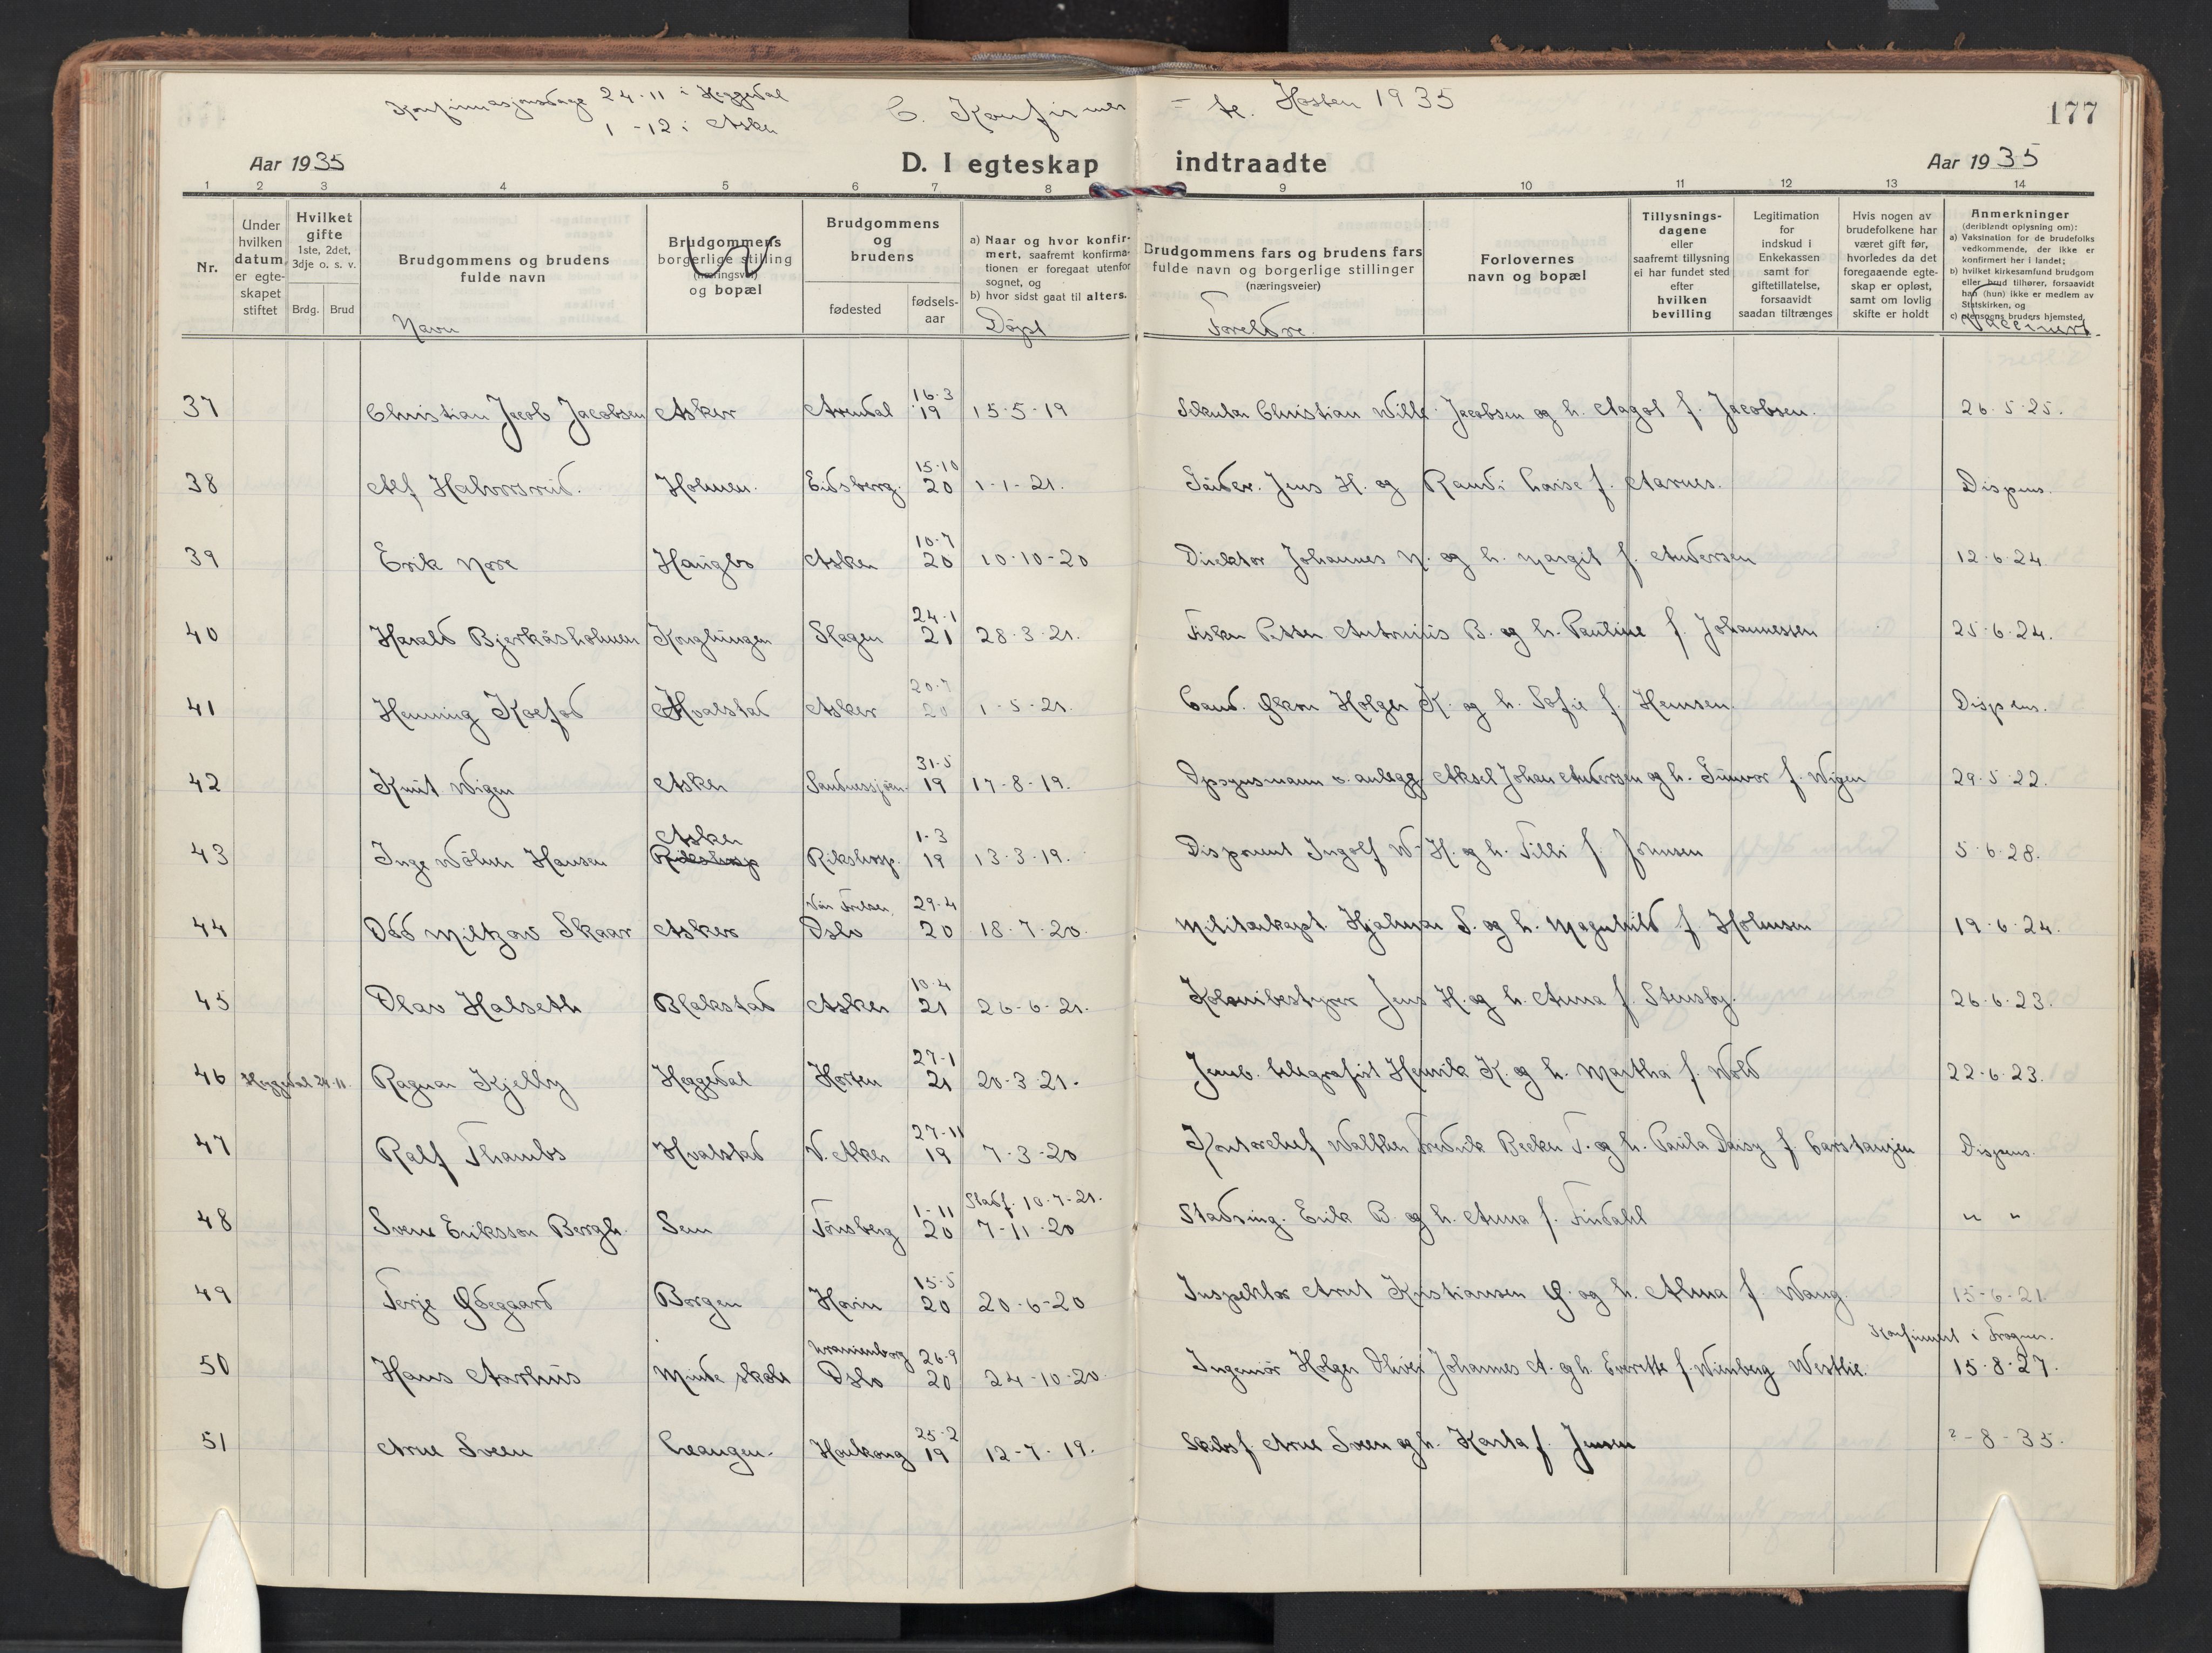 Konfirmasjonsdage 24-11 i Heggedal
1-12 i Asker
C. Konfirmer = te. Høsten 1935
177
Aar 1935
D. I egteskap indtraadte
Aar 1935
1 2 3 4 5 6 7 8 9 10 11 12 13 14
Nr.
Under hvilken datum er egteskapet stiftet
Hvilket gifte 1ste, 2det, 3dje o. s. v.
Brdg. Brud
Brudgommens og brudens fulde navn
Navn
Brudgommens borgerlige stilling (næringsvei) og bopæl
Brudgommens og brudens
fødested
fødsels-aar
a) Naar og hvor konfirmert, saafremt konfirmationen er foregaat utenfor sognet, og
b) hvor sidst gaat til alters.
Døpt
Brudgommens fars og brudens fars fulde navn og borgerlige stillinger (næringsveier)
Foreldre
Forlovernes navn og bopæl
Tillysnings-dagene eller saafremt tillysning ei har fundet sted efter hvilken bevilling
Legitimation for indskud i Enkekassen samt for giftetillatelse, forsaavidt saadan tiltrænges
Hvis nogen av brudefolkene har været gift før, hvorledes da det foregaaende egteskap er opløst, samt om lovlig skifte er holdt
Anmerkninger (deriblandt oplysning om):
a) Vaksination for de brudefolks vedkommende, der ikke er konfirmert her i landet;
b) hvilket kirkesamfund brudgom eller brud tilhører, forsaavidt han (hun) ikke er medlem av Statskirken, og
c) utensogns bruders hjemsted.
Vaccinert
37 Christian Jacob Jacobsen Asker Arendal 16-3 19 15-5-19 Christian Wilh. Jacobsen og h. Aagot f. Jacobsen. 26-5-25.
38 Alf Halvorsrud. Holmen. Eidsberg. 15-10 20 1-1-21. Jens H. og Randi Lovise f. Aarnes. Dispens.
39 Erik Nore Haugbo Asker 10-7 20 10-10-20 Direktør Johannes N. og h. Margit f. Andersen 12-6-24.
40 Harald Bjerkåsholmen Konglungen Slagen 24-1 21 28-3-21. Fisker Petter Antonius B. og h. Pauline f. Johannessen 25-6-24.
41 Henning Koefod Hvalstad Asker 20-7 20 1-5-21. Cand. økon Holger K. og h. Sofie f. Hemsen. Dispens.
42 Knut Wigen Asker Sandnessjøen 31-5 19 17-8-19. Opsynsmann v. anlegg Aksel Johan Andersen og h. Gunvor f. Wigen 29-5-22.
43 Inge Wølner Hansen Asker Rikshosp Rikshosp. 1-3 19 13-3-19. Disponent Ingolf W-H. og h. Tilli f. Johnsen 5-6-28.
44 Odd Miltzow Skaar Asker Vår Frelser, Oslo 29-4 20 18-7-20. Militærkapt. Hjalmar S. og h. Magnhild f. Holmsen 19-6-24.
45 Olav Halseth Blakstad Asker 10-4 21 26-6-21. Kolonibestyrer Jens H. og h. Anna f. Stensby. 26-6-23.
46 Heggedal 24-11. Ragnar Kjelby Heggedal Horten 27-1 21 20-3-21. Jernb. telegrafist Henrik K. og h. Martha f. Wold 22-6-23.
47 Ralf Thambs Hvalstad V. Aker 27-11 19 7-3-20 Kontorchef Walther Fredrik Becker T. og h. Paula Daisy f. Carstanjen Dispens.
48 Svene Eriksson Bergh. Sem Tønsberg 1-11 20 Stadf. 10-7-21. 7-11-20 Stading. Erik B. og h. Anna f. Lindahl " "
49 Terje Ødegaard Borgen Hovin 15-5 20 20-6-20 Inspektør Arnt Kristiansen Ø. og h. Alma f. Wang. 15-6-21
50 Hans Aarhus Minde skole Uranienborg Oslo 26-9 20 24-10-20. Ingeniør Holger Oliver Johannes A. og h. f. Westlie. Konfirmert i Frogner. 15-8-27.
51 Arne Sveen Leangen. Honkong 25-2 19 12-7-19. Skibsf. Arne Sveen og h. Karla f. Jensen ?-8-35.